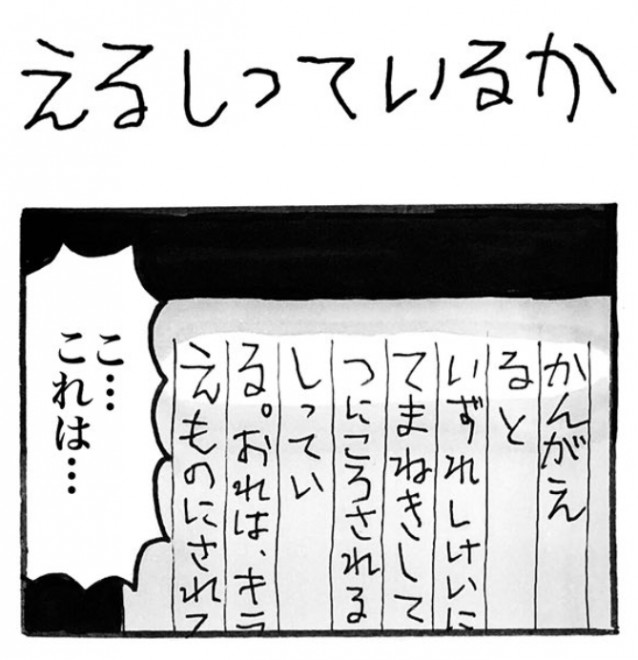 えるしっているか
かんがえ
ると
いずれしけいに
てまねきして
つにころされる
しってい
る。おれは、キラ
えものにされて
こ…
これは…